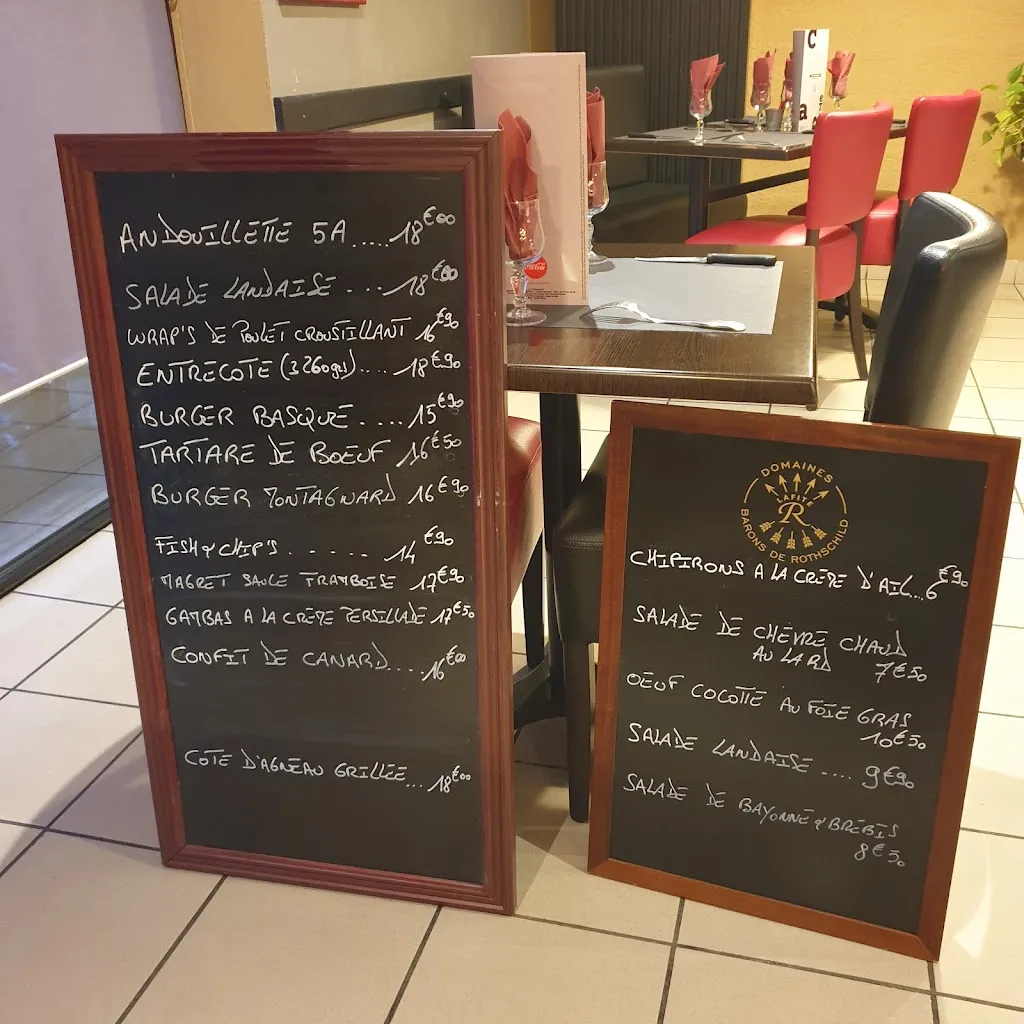 ANDOUILLETTE 5A.....18€00
SALADE LANDAISE ....18€00
WRAP'S DE POULET CROUSTILLANT 16€90
ENTRECOTE (± 260gr)....18€90
BURGER BASQUE .....15€90
TARTARE DE BOEUF 16€50
BURGER MONTAGNARD 16€90
FISH & CHIP'S . . . . . . 14€90
MAGRET SAUCE FRAMBOISE 17€90
GAMBAS A LA CRÈME PERSILLADE 17€50
CONFIT DE CANARD....16€00
COTE D'AGNEAU GRILLÉE...18€00
Coca-Cola
C
a
DOMAINES
LAFITE
R
BARONS DE ROTHSCHILD
CHIPIRONS A LA CRÈME D'AIL...6€90
SALADE DE CHÈVRE CHAUD
AU LARD 7€50
OEUF COCOTTE AU FOIE GRAS
10€50
SALADE LANDAISE .... 9€90
SALADE DE BAYONNE & BREBIS
8€50